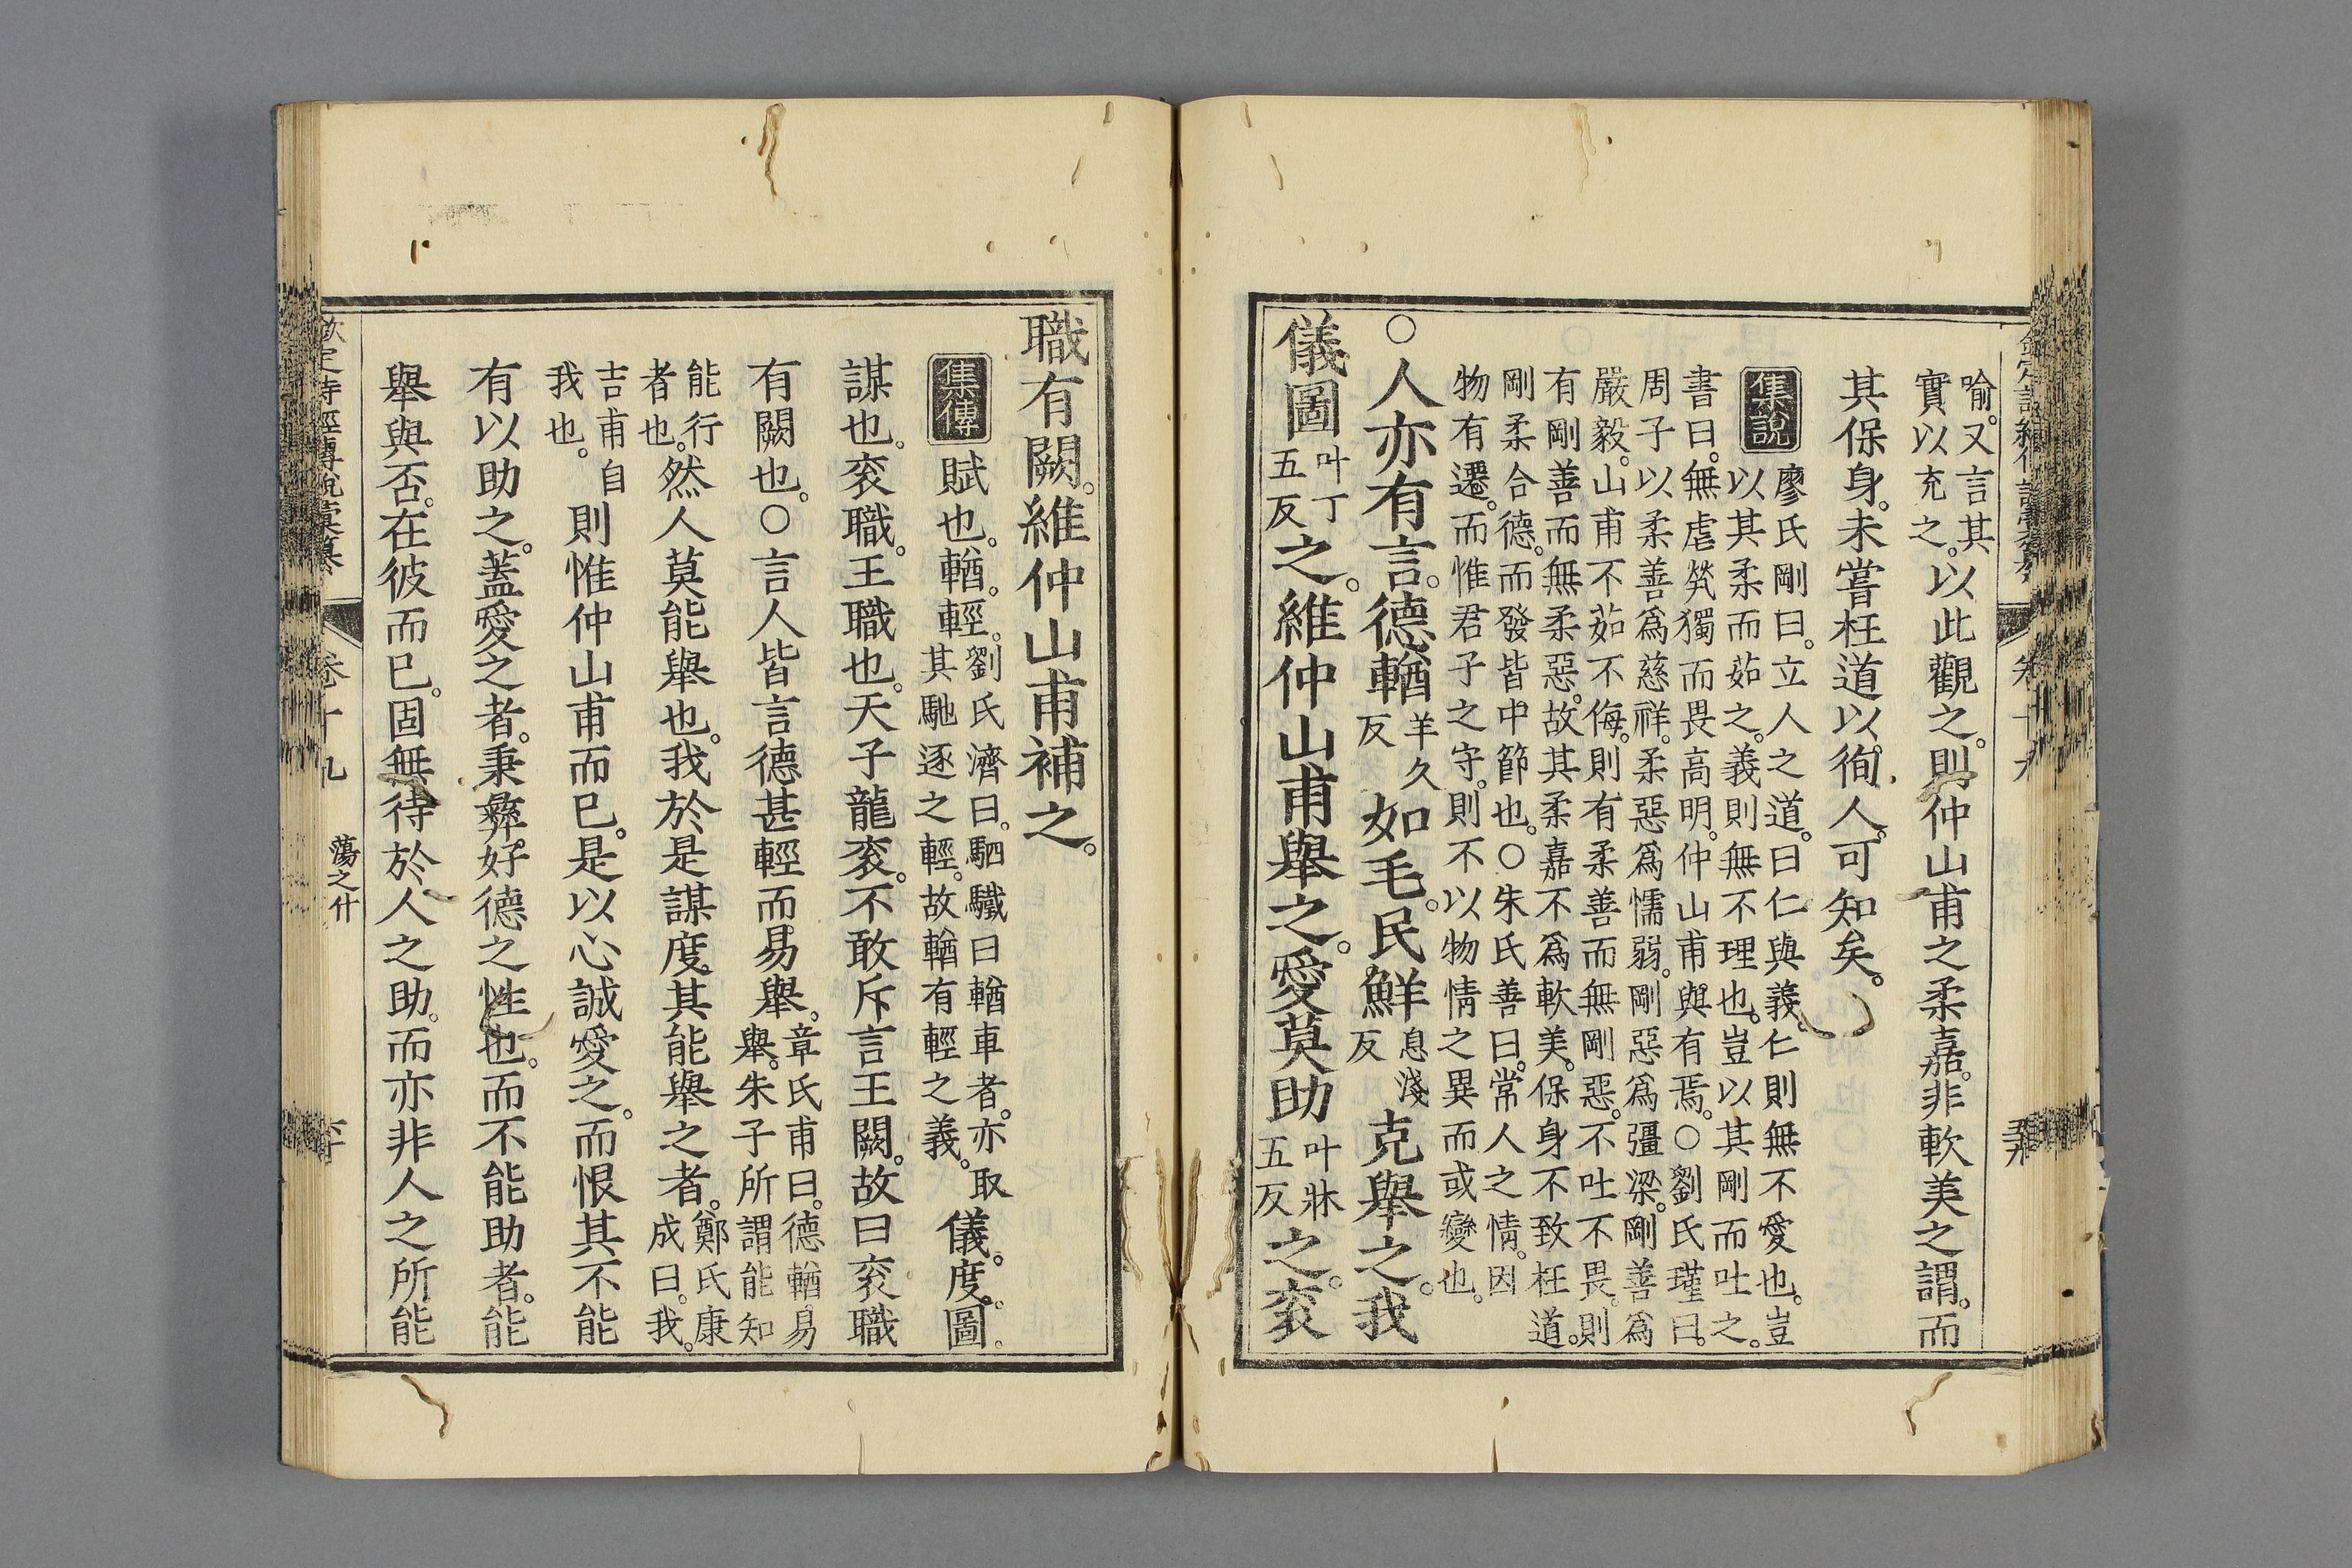 喻。又言其
實以充之。以此觀之。則仲山甫之柔嘉。非軟美之謂。而
其保身。未嘗枉道以徇人。可知矣。
集說
廖氏剛曰。立人之道。曰仁與義。仁則無不愛也。豈
以其柔而茹之。義則無不理也。豈以其剛而吐之。
書曰。無虐煢獨而畏高明。仲山甫與有焉。○劉氏瑾曰。
周子以柔善爲慈祥。柔惡爲懦弱。剛惡爲彊梁。剛善爲
嚴毅。山甫不茹不侮。則有柔善而無剛惡。不吐不畏。則
有剛善而無柔惡。故其柔嘉不爲軟美。保身不致枉道。
剛柔合德。而發皆中節也。○朱氏善曰。常人之情。因
物有遷。而惟君子之守。則不以物情之異而或變也。
○人亦有言。德輶羊久反如毛。民鮮息淺反克舉之。我
儀圖叶丁五反之。維仲山甫舉之。愛莫助叶牀五反之。袞
職有闕。維仲山甫補之。
集傳
賦也。輶。輕。劉氏濟曰。駟驖曰輶車者。亦取其馳逐之輕。故輶有輕之義。儀。度。圖。
謀也。袞職。王職也。天子龍袞。不敢斥言王闕。故曰袞職
有闕也。○言人皆言德甚輕而易舉。章氏甫曰。德輶易舉。朱子所謂能知
能行者也。然人莫能舉也。我於是謀度其能舉之者。鄭氏康成曰。我。
吉甫自我也。則惟仲山甫而已。是以心誠愛之。而恨其不能
有以助之。蓋愛之者。秉彝好德之性也。而不能助者。能
舉與否。在彼而已。固無待於人之助。而亦非人之所能
卷十九
蕩之什